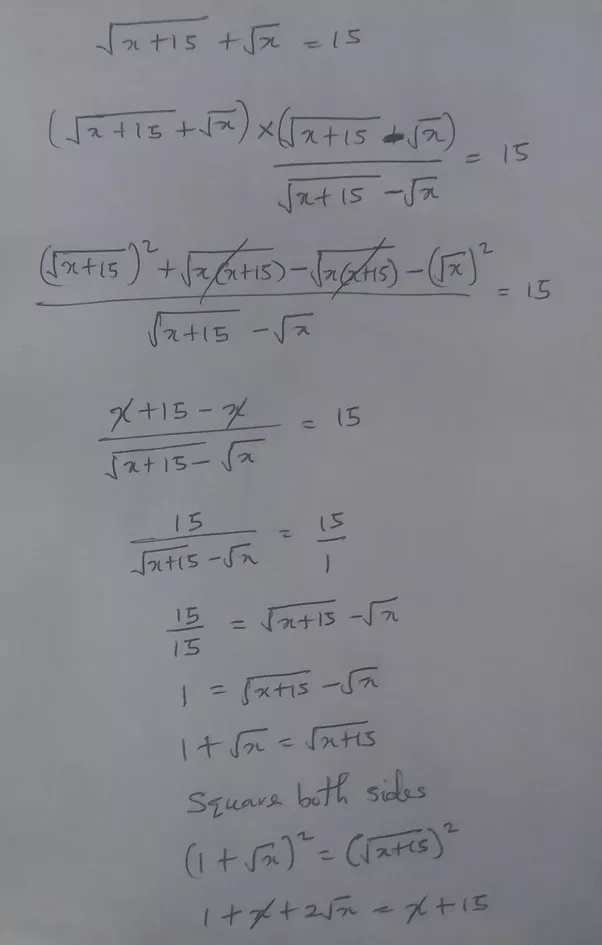 √(x+15) + √x = 15
(√(x+15) + √x) × (√(x+15) - √x) / (√(x+15) - √x) = 15
((√(x+15))² + √(x(x+15)) - √(x(x+15)) - (√x)²) / (√(x+15) - √x) = 15
(x+15-x) / (√(x+15) - √x) = 15
15 / (√(x+15) - √x) = 15/1
15/15 = √(x+15) - √x
1 = √(x+15) - √x
1 + √x = √(x+15)
Square both sides
(1 + √x)² = (√(x+15))²
1 + x + 2√x = x + 15